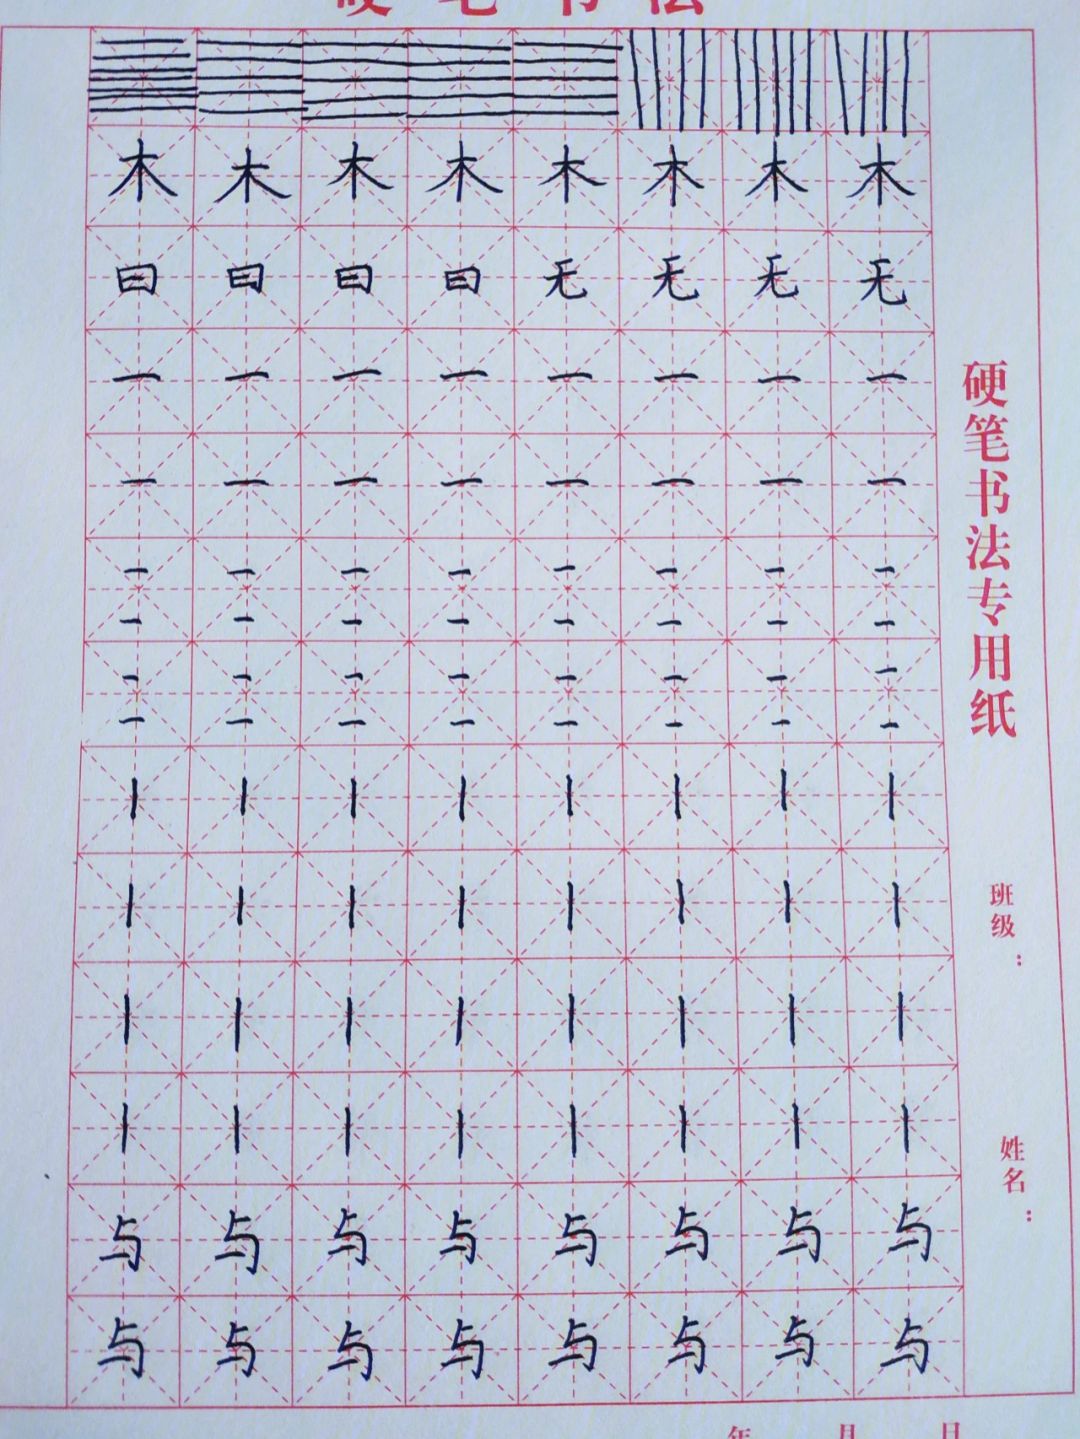 硬笔书法
木木木木木木木木
曰曰曰曰无无无无
一一一一一一一一
一一一一一一一一
二二二二二二二二
二二二二二二二二
丨丨丨丨丨丨丨丨
丨丨丨丨丨丨丨丨
丨丨丨丨丨丨丨丨
丨丨丨丨丨丨丨丨
与与与与与与与与
与与与与与与与与
硬笔书法专用纸
班级：
姓名：
年 月 日